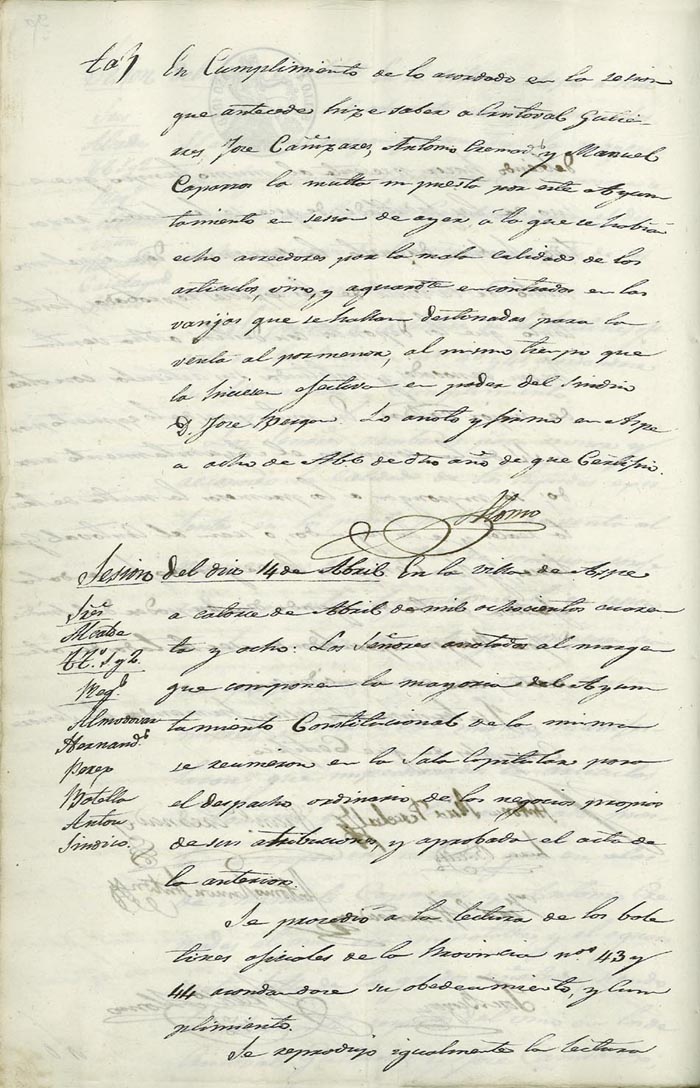 En Cumplimiento de lo acordado en la sesion
que antecede hize saber a Cristoval Gutier-
res, Jose Cañizares, Antonio Cremads y Manuel
Caparros la multa impuesta por este Ayun
tamiento en sesion de ayer, á la que se habian
echo acreedores por la mala calidad de los
articulos, vino, y aguardte encontrados en las
varijas que se hallan destinadas para la
venta al pormenor, al mismo tiempo que
la hiciesen efectiva en poder del Sindico
D. Jose Berger. Lo anoto y firmo en Aspe
a ocho de Abl de dho año de que Certifico.
Sesion del dia 14 de Abril. En la villa de Aspe
a catorce de Abril de mil ochocientos cuaren
ta y ocho: Los Señores anotados al margen
que componen la mayoria del Ayun
tamiento Constitucional de la misma
se reunieron en la Sala Capitular para
el despacho ordinario de los negocios propios
de sus atribuciones, y aprobada el acta de
la anterior.
Sres
Alcalde
Tts. 1 y 2.
Regs
Almodovar
Hernands
Perez
Botella
Anton
Sindico.
Se procedió a la lectura de los bole
tines oficiales de la Provincia nos 43 y
44 acordandose su obedecimiento, y Cum
plimiento.
Se reprodujo igualmente la lectura